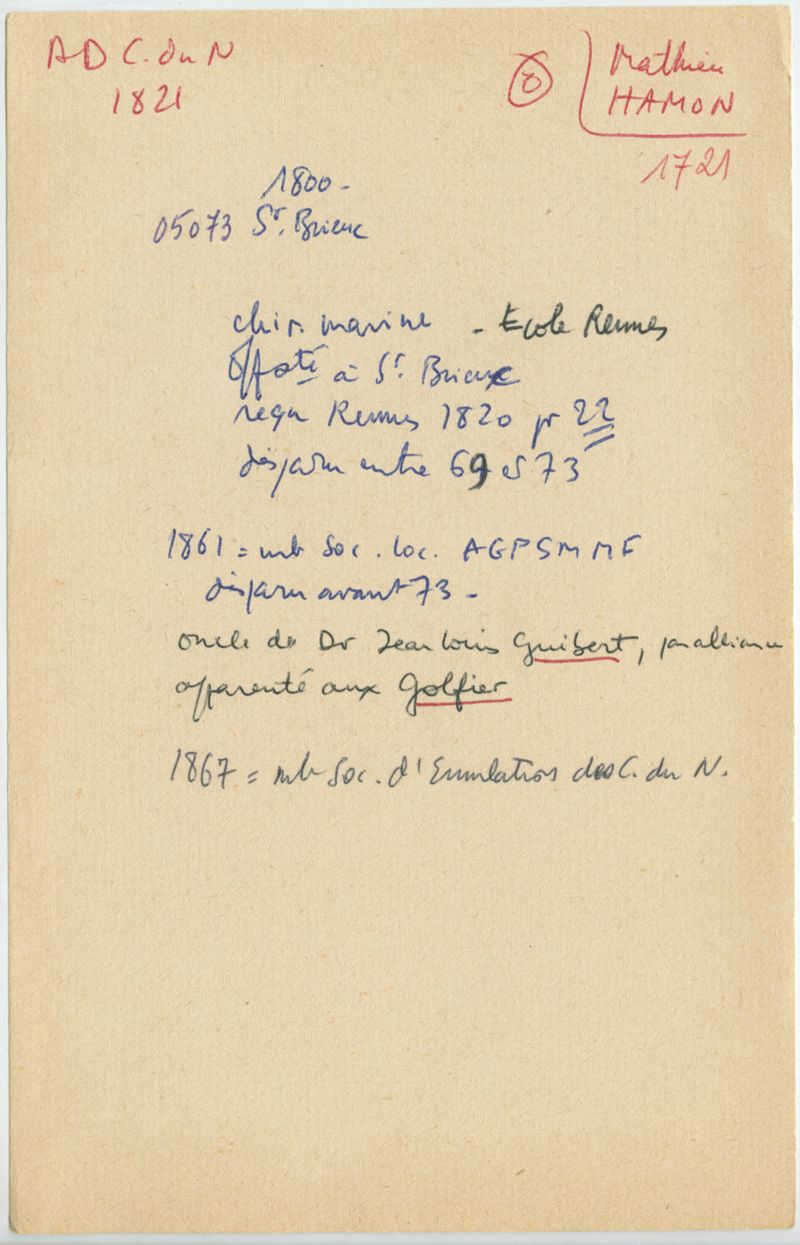 AD C. du N
1821
8
Mathieu
HAMON
1721
1800-
05073 St. Brieuc
chir. marine - Ecole Rennes
à St. Brieuc
reçu Rennes 1820 pr 22
disparu entre 69 et 73
1861 = mb Soc. loc. AGPSMMF
disparu avant 73-
oncle du Dr Jean Louis Guibert, par alliance
apparenté aux Golfier
1867 = mb Soc. d'Emulation des C. du N.